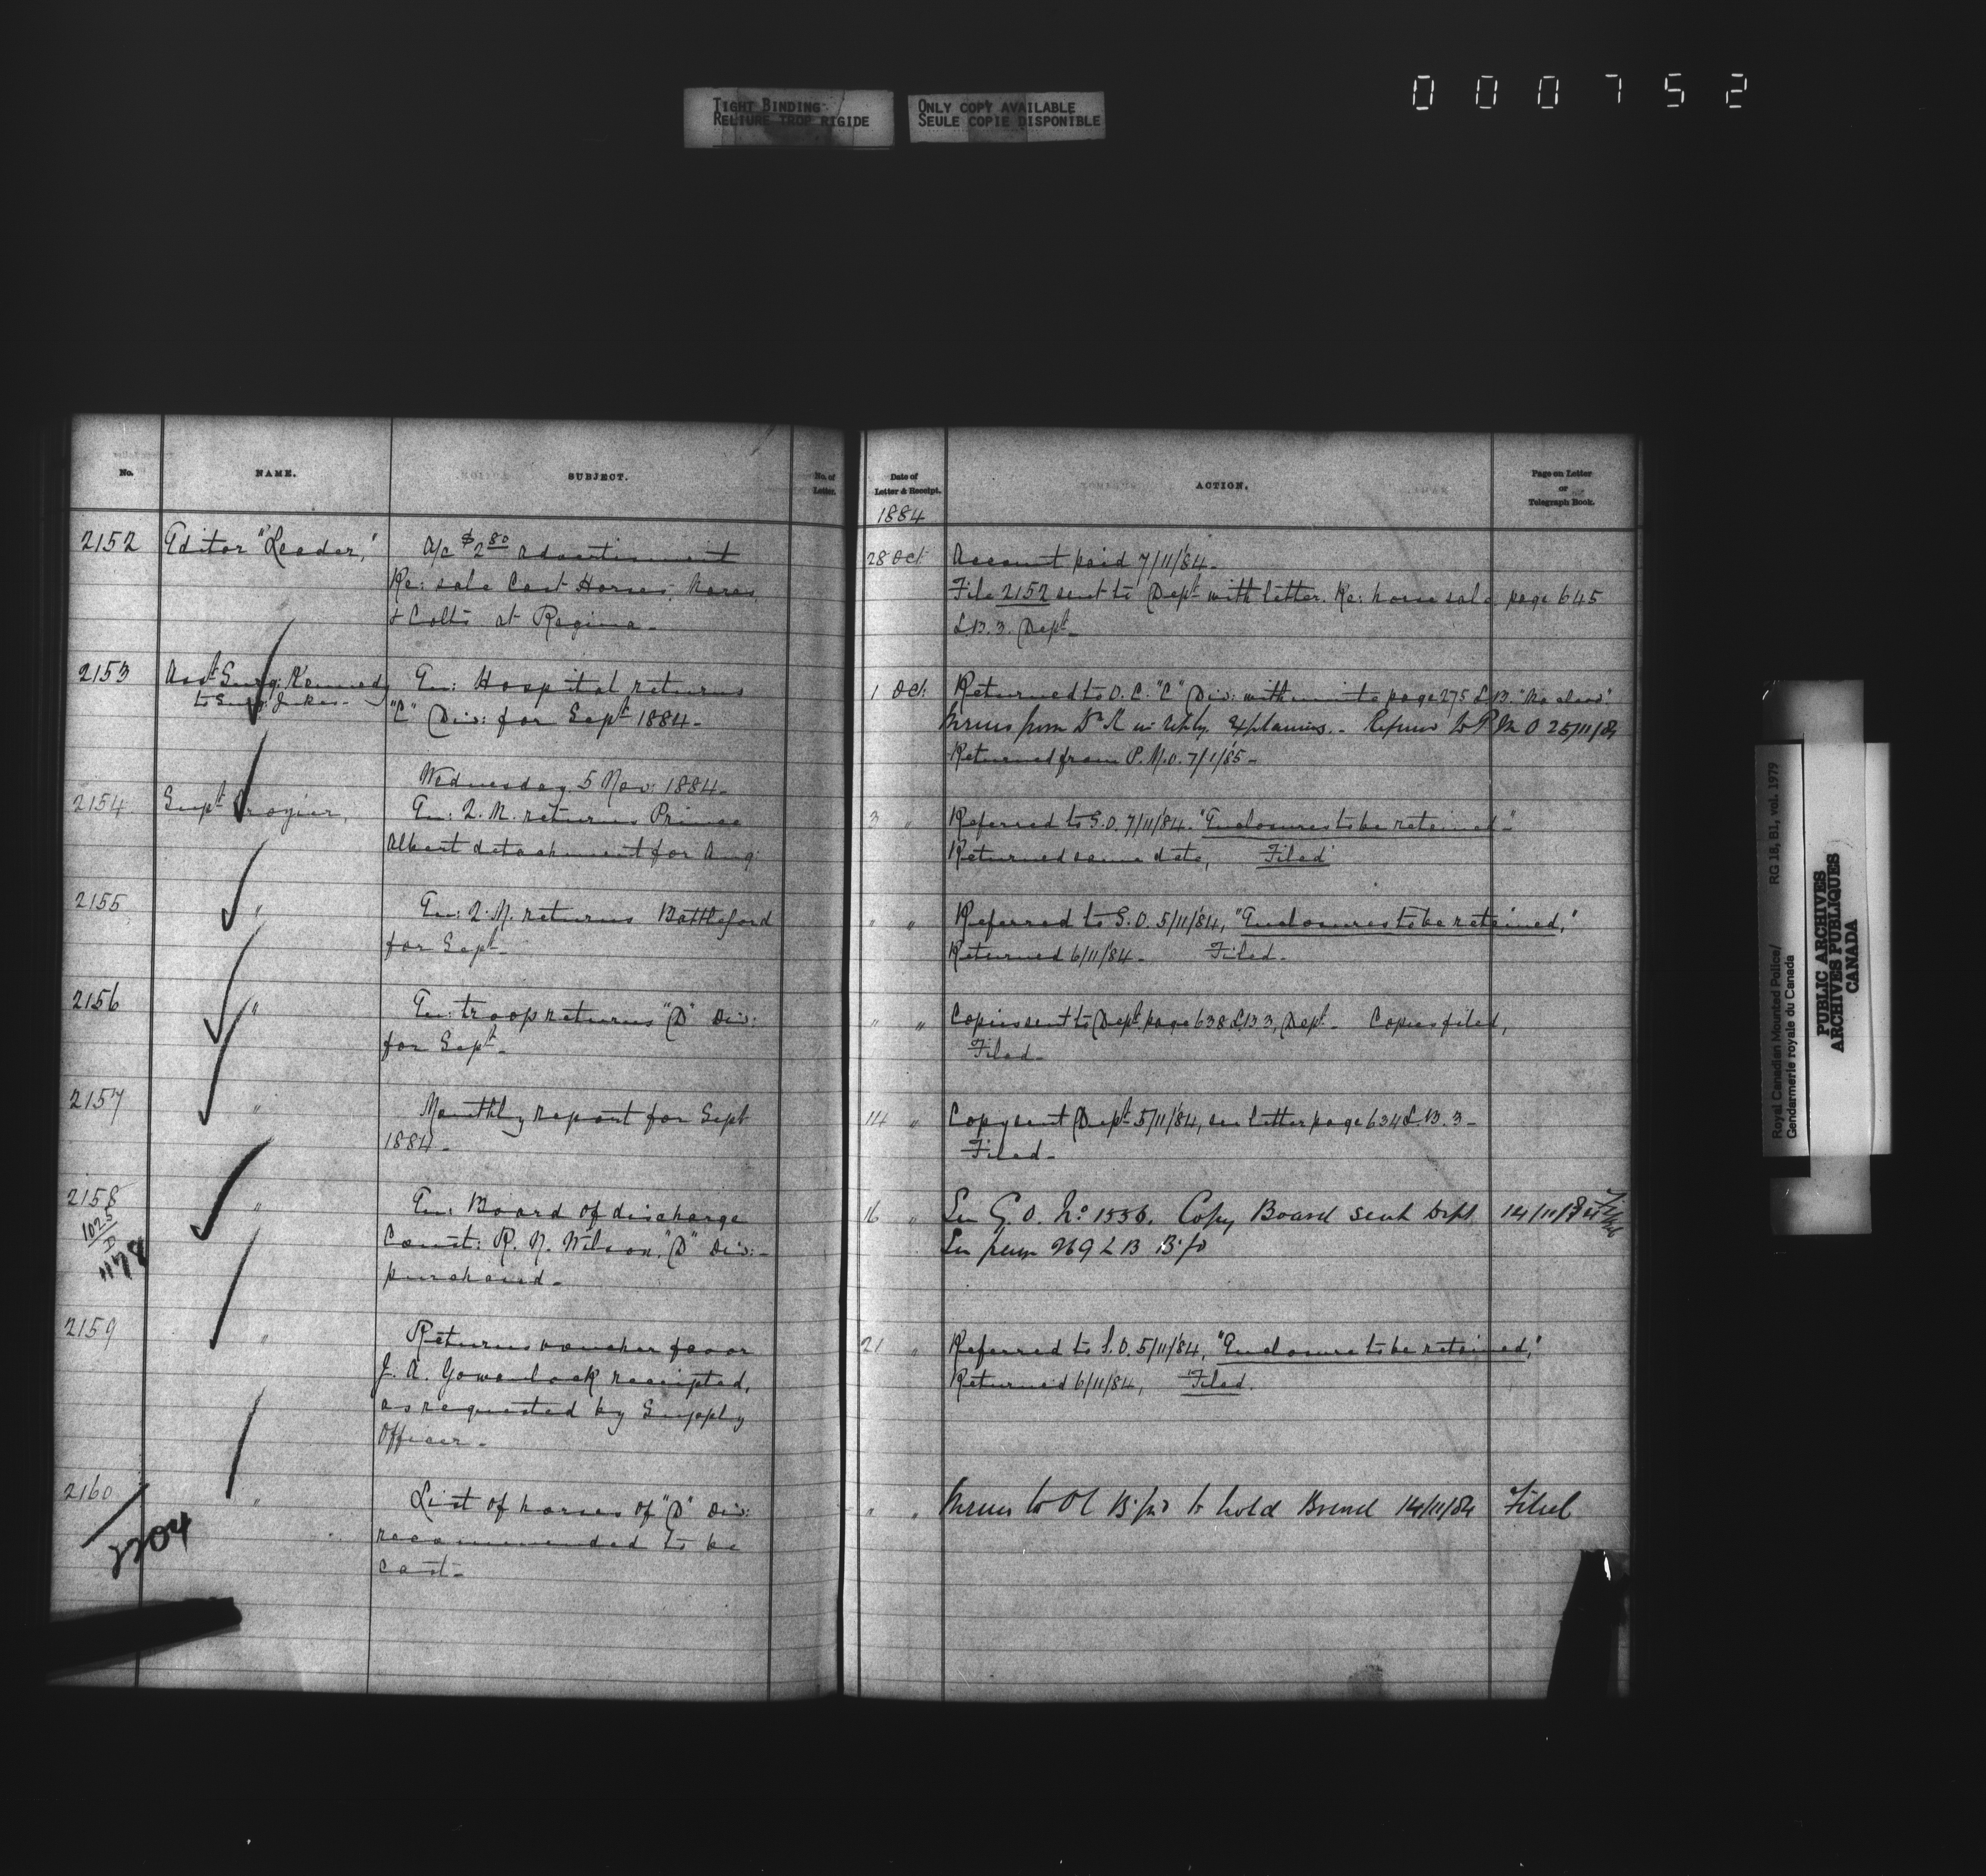 000752
TIGHT BINDING
RELIURE TROP RIGIDE
ONLY COPY AVAILABLE
SEULE COPIE DISPONIBLE
No.
NAME.
SUBJECT.
No. of
Letter.
2152
Editor "Leader,"
A/c $2 80 advertisement
Re: sale Cast Horses, Mares
& Colts at Regina -
2153
Asst Surg: Kennedy
to Surg: Jukes -
En: Hospital returns
"C" Div: for Sept 1884 -
Wednesday 5 Nov: 1884 -
2154
Supt Crozier,
En: Q. M. returns Prince
Albert detachment for Aug
2155
"
En: Q. M. returns Battleford
for Sept -
2156
"
En: troop returns "D" Div:
for Sept -
2157
"
Monthly report for Sept
1884 -
2158
1025
D
1178
"
En: Board of discharge
Const: R. N. Wilson, "D" Div: -
purchased -
2159
"
Returns voucher favor
J. A. Gowanlock receipted,
as requested by Supply
Officer -
2160
2204
"
List of horses of "D" Div:
recommended to be
cast -
Date of
Letter & Receipt.
ACTION.
Page on Letter
or
Telegraph Book.
1884
28 Oct
Account paid 7/11/84 -
File 2152 sent to Dept with letter. Re: horse sale page 645
L.B. 3. Dept -
1 Oct:
Returned to O. C. "C" Div: with minute page 275 L.B.
from Dr K in reply. Explaining. - P M O 25/11/84
Returned from P. M. O. 7/1/85 -
3 "
Referred to S. O. 7/11/84. "Enclosures to be retained -"
Returned same date, Filed
" "
Referred to S. O. 5/11/84, "Enclosures to be retained,"
Returned 6/11/84 - Filed -
" "
Copies sent to Dept page 638 L.B 3, Dept - Copies filed,
Filed -
14 "
Copy sent Dept 5/11/84, see letter page 634 L. B. 3 -
Filed -
16 "
See G. O. No 1556. Copy Board sent Dept 14/11/84
See page 269 L B B'fd
21 "
Referred to S. O. 5/11/84, "Enclosure to be retained,"
Returned 6/11/84, Filed.
" "
to OC B'fd to hold Board 14/11/84 Filed
Royal Canadian Mounted Police/
Gendarmerie royale du Canada
RG 18, B1, vol. 1979
PUBLIC ARCHIVES
ARCHIVES PUBLIQUES
CANADA